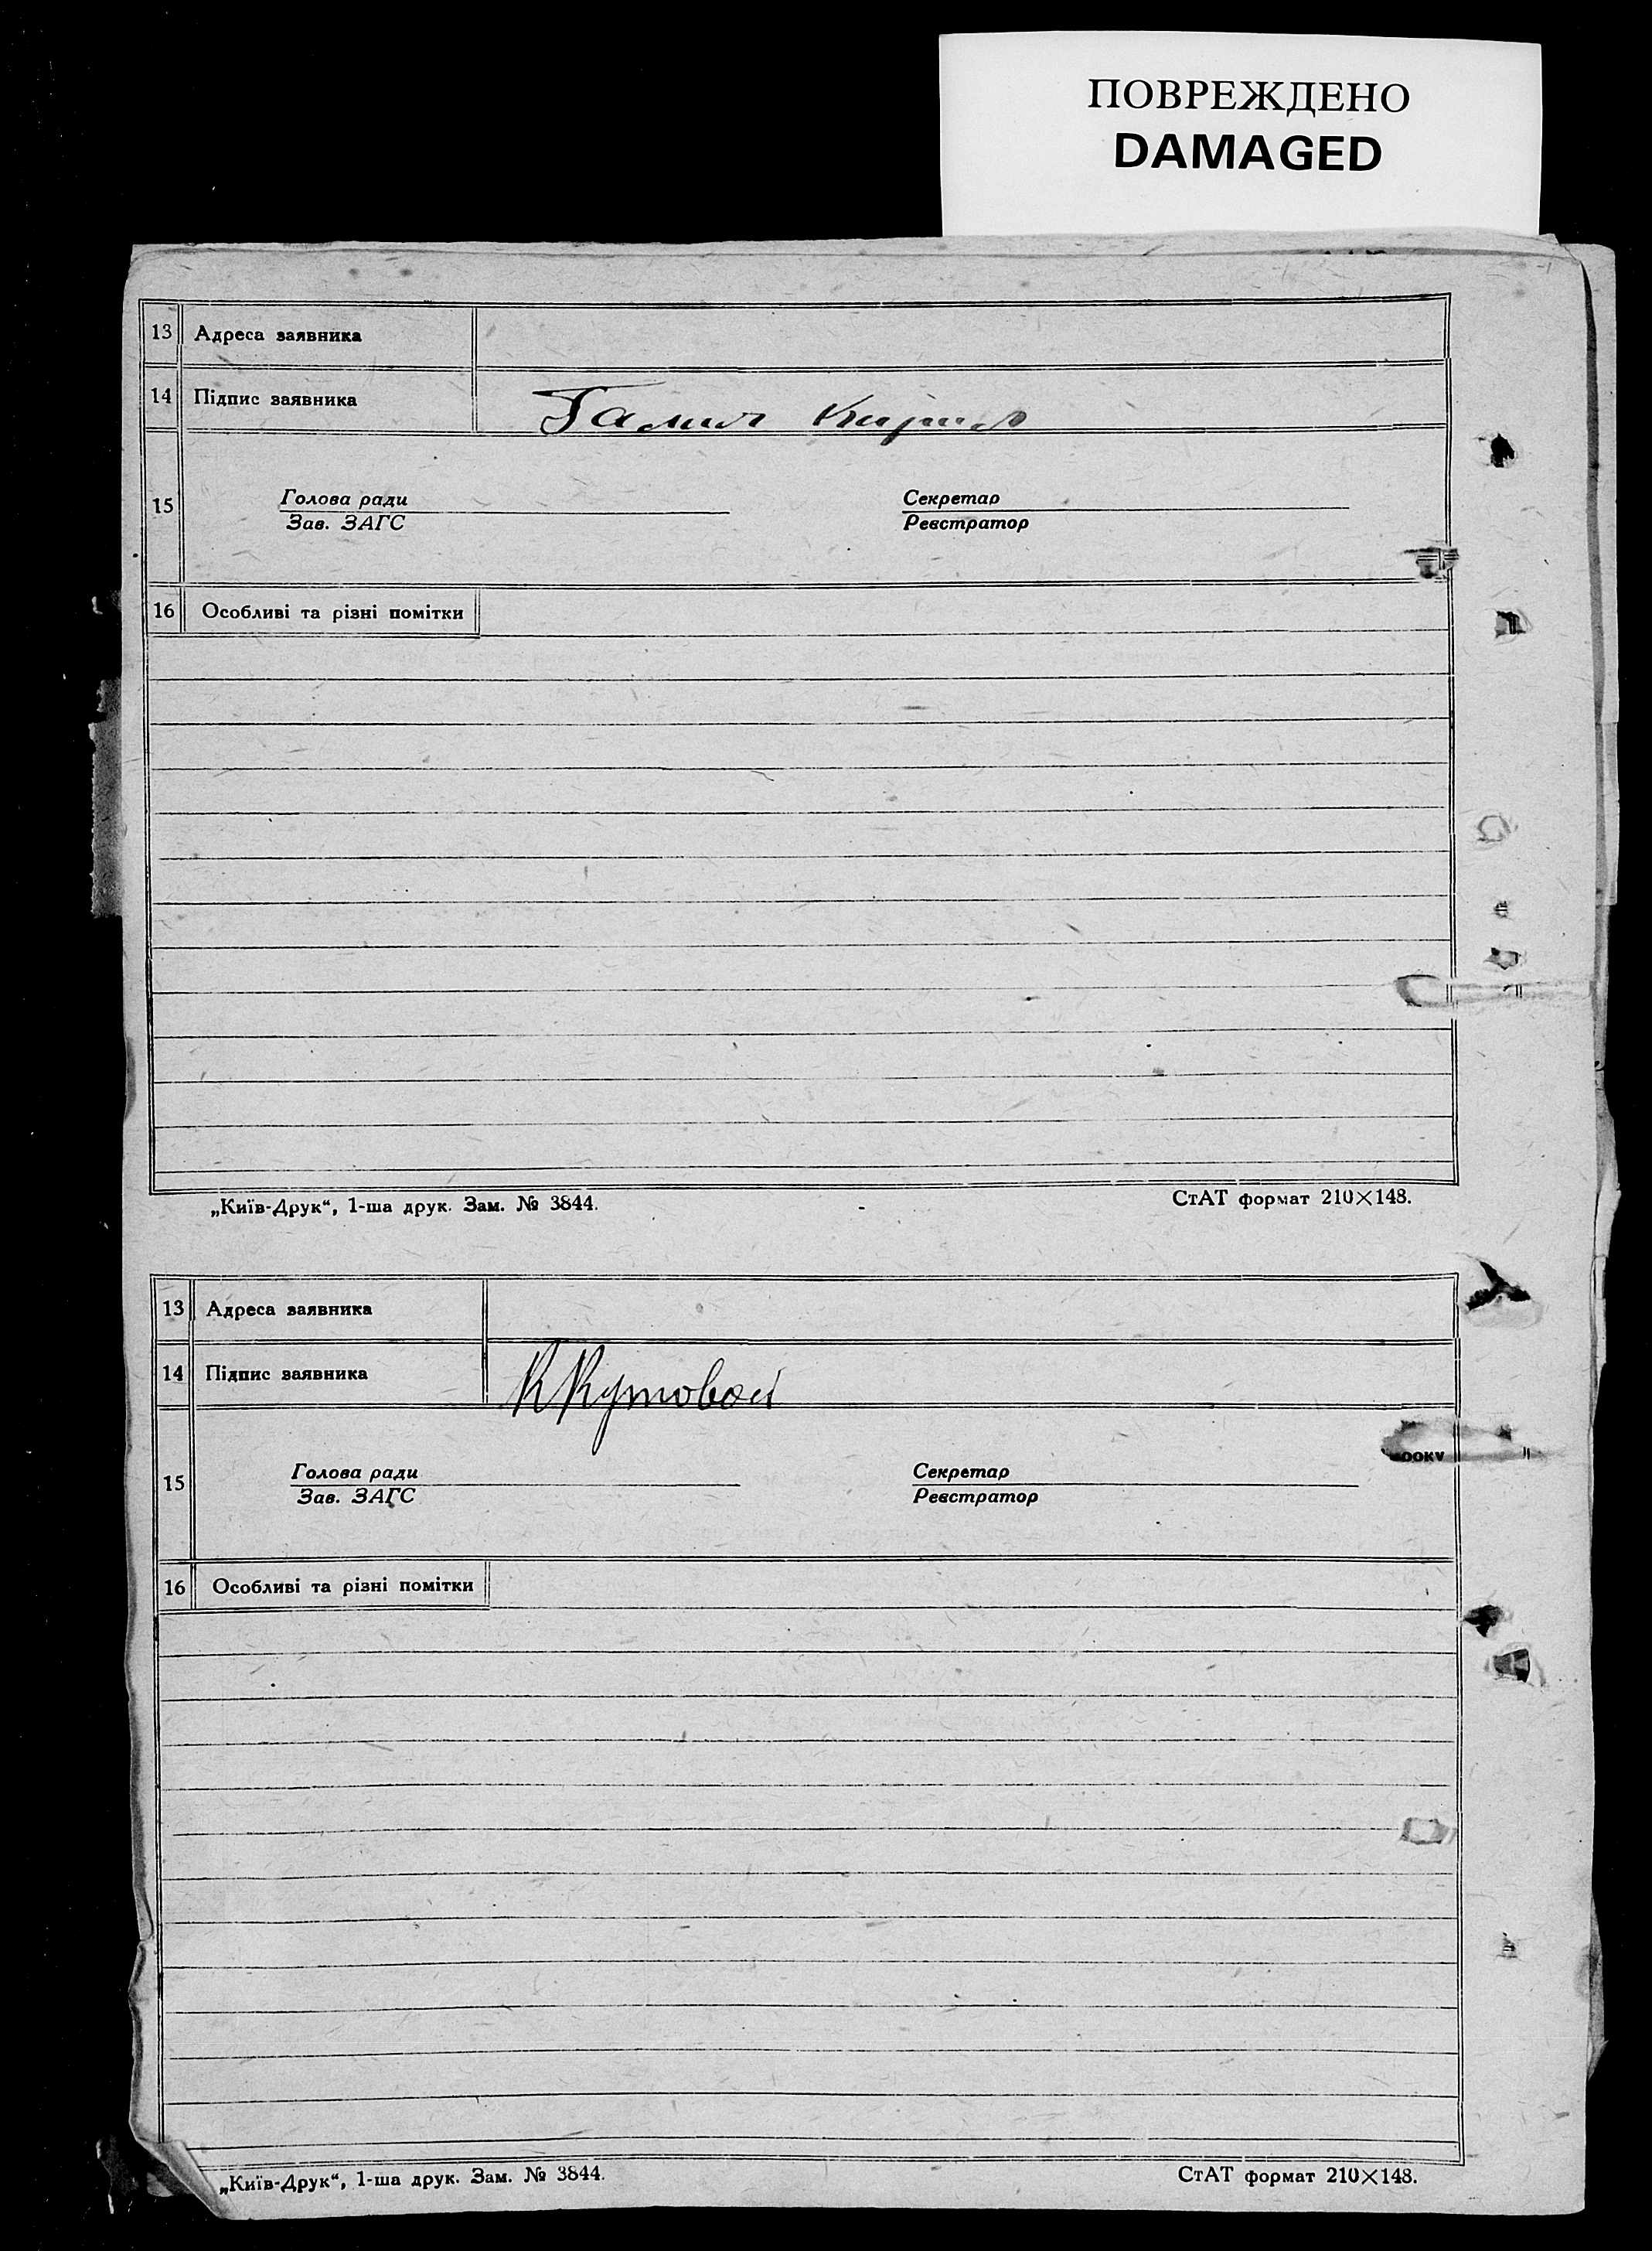 ПОВРЕЖДЕНО
DAMAGED
13 Адреса заявника
14 Підпис заявника
15 Голова ради Секретар
Зав. ЗАГС Реєстратор
16 Особливі та різні помітки
„Київ-Друк“, 1-ша друк. Зам. № 3844. СтАТ формат 210×148.
13 Адреса заявника
14 Підпис заявника ККутовой
15 Голова ради Секретар
Зав. ЗАГС Реєстратор
16 Особливі та різні помітки
„Київ-Друк“, 1-ша друк. Зам. № 3844. СтАТ формат 210×148.